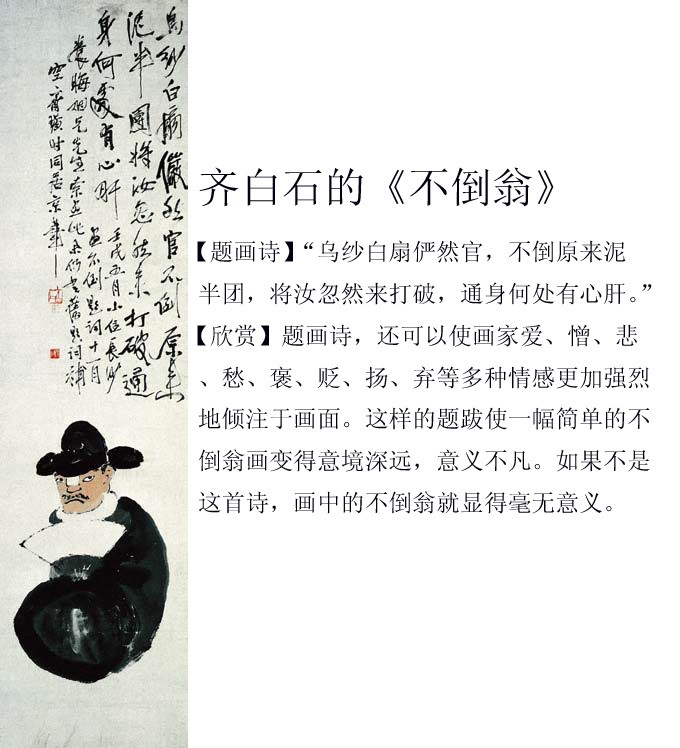 烏紗白扇儼然官不倒原來
泥半團將汝忽然來打破通
身何處有心肝 壬戌五月小住長沙
畫不倒題詞十一月
兄先生畫此舊題詞補
空璜時同居京華
齐白石的《不倒翁》
【题画诗】“乌纱白扇俨然官，不倒原来泥
半团，将汝忽然来打破，通身何处有心肝。”
【欣赏】题画诗，还可以使画家爱、憎、悲
、愁、褒、贬、扬、弃等多种情感更加强烈
地倾注于画面。这样的题跋使一幅简单的不
倒翁画变得意境深远，意义不凡。如果不是
这首诗，画中的不倒翁就显得毫无意义。